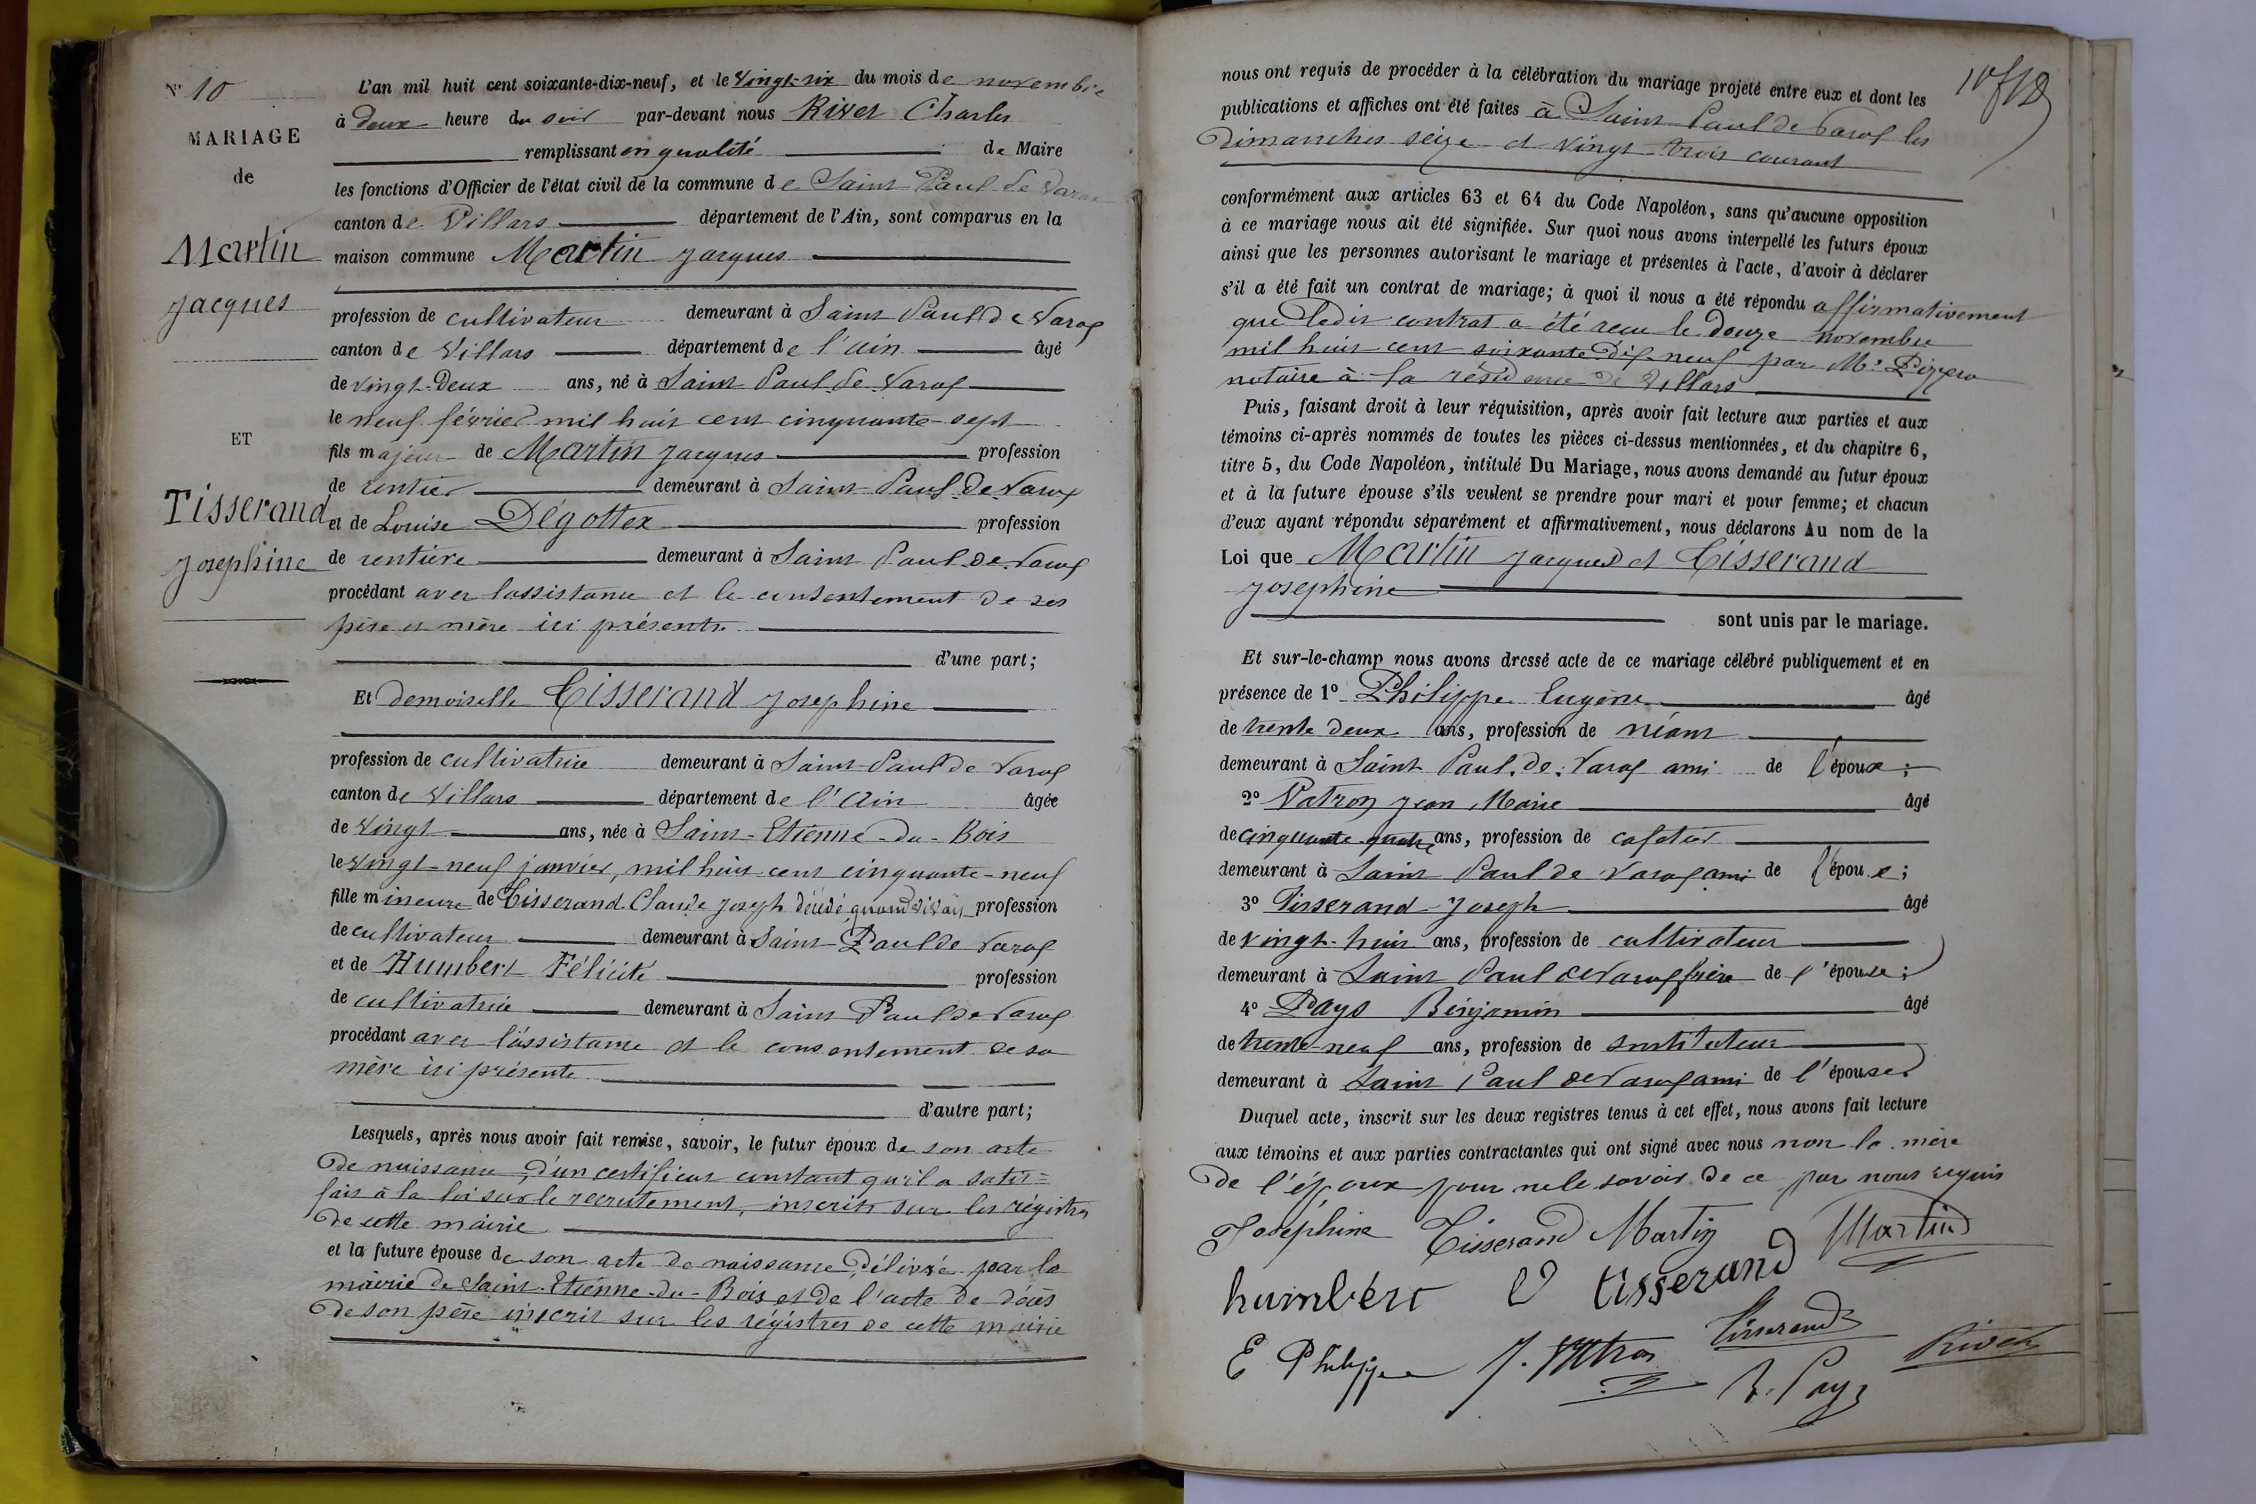 N° 10
MARIAGE
de
Martin
Jacques
ET
Tisserand
Josephine
L'an mil huit cent soixante-dix-neuf, et le Vingt-six du mois de novembre
à deux heure du soir par-devant nous Rivet Charles
remplissant en qualité de Maire
les fonctions d'Officier de l'état civil de la commune de Saint Paul de Varax
canton de Villars département de l'Ain, sont comparus en la
maison commune Martin Jacques
profession de cultivateur demeurant à Saint Paul de Varax
canton de Villars département de l'Ain âgé
de vingt-deux ans, né à Saint Paul de Varax
le neuf février mil huit cent cinquante-sept
fils majeur de Martin Jacques profession
de rentier demeurant à Saint Paul de Varax
et de Louise Dégottex profession
de rentière demeurant à Saint Paul de Varax
procédant avec l'assistance et le consentement de ses
père et mère ici présents
d'une part;
Et demoiselle Tisserand Josephine
profession de cultivatrice demeurant à Saint Paul de Varax
canton de Villars département de l'Ain âgée
de vingt ans, née à Saint-Etienne-du-Bois
le vingt-neuf janvier, mil huit cent cinquante-neuf
fille mineure de Tisserand Claude Joseph décédé quand vivait profession
de cultivateur demeurant à Saint Paul de Varax
et de Humbert Félicité profession
de cultivatrice demeurant à Saint Paul de Varax
procédant avec l'assistance et le consentement de sa
mère ici présente
d'autre part;
Lesquels, après nous avoir fait remise, savoir, le futur époux de son acte
de naissance, d'un certificat constant qu'il a satis=
fait à la loi sur le recrutement, inscrits sur les régistres
de cette mairie
et la future épouse de son acte de naissance, délivré par la
mairie de Saint-Etienne-du-Bois et de l'acte de décès
de son père inscrit sur les régistres de cette mairie
nous ont requis de procéder à la célébration du mariage projeté entre eux et dont les
publications et affiches ont été faites à Saint Paul de Varax les
dimanches seize et vingt-trois courant
conformément aux articles 63 et 64 du Code Napoléon, sans qu'aucune opposition
à ce mariage nous ait été signifiée. Sur quoi nous avons interpellé les futurs époux
ainsi que les personnes autorisant le mariage et présentes à l'acte, d'avoir à déclarer
s'il a été fait un contrat de mariage; à quoi il nous a été répondu affirmativement
que ledit contrat a été reçu le douze novembre
mil huit cent soixante dix neuf par Me
notaire à la résidence de Villars
Puis, faisant droit à leur réquisition, après avoir fait lecture aux parties et aux
témoins ci-après nommés de toutes les pièces ci-dessus mentionnées, et du chapitre 6,
titre 5, du Code Napoléon, intitulé Du Mariage, nous avons demandé au futur époux
et à la future épouse s'ils veulent se prendre pour mari et pour femme; et chacun
d'eux ayant répondu séparément et affirmativement, nous déclarons Au nom de la
Loi que Martin Jacques et Tisserand
Josephine
sont unis par le mariage.
Et sur-le-champ nous avons dressé acte de ce mariage célébré publiquement et en
présence de 1° Philippe Eugène âgé
de trente deux ans, profession de néant
demeurant à Saint Paul de Varax ami de l'époux;
2° Patron Jean Marie âgé
de cinquante quatre ans, profession de cafetier
demeurant à Saint Paul de Varax ami de l'époux;
3° Tisserand Joseph âgé
de vingt-huit ans, profession de cultivateur
demeurant à Saint Paul de Varax frère de l'épouse;
4° Pays Bénjamin âgé
de trente-neuf ans, profession de instituteur
demeurant à Saint Paul de Varax ami de l'épouse.
Duquel acte, inscrit sur les deux registres tenus à cet effet, nous avons fait lecture
aux témoins et aux parties contractantes qui ont signé avec nous non la mère
de l'époux pour ne le savoir de ce par nous requis
Joséphine Tisserand Martin Martin
humbert tisserand
Tisserand
E Philippe J. Patron Rivet
B. Pays